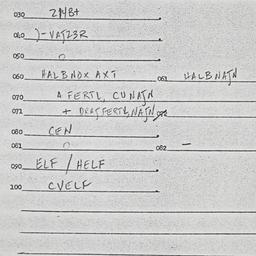 030 2948+
040 )-VAT23R
050 0
060 HALBNOX AXT 061 HALBNATN
070 A FERTL, CUNATN
071 + DRATFERTL, NATN 072
080 CEN
081 0 082 —
090 ELF / HELF
100 CVELF